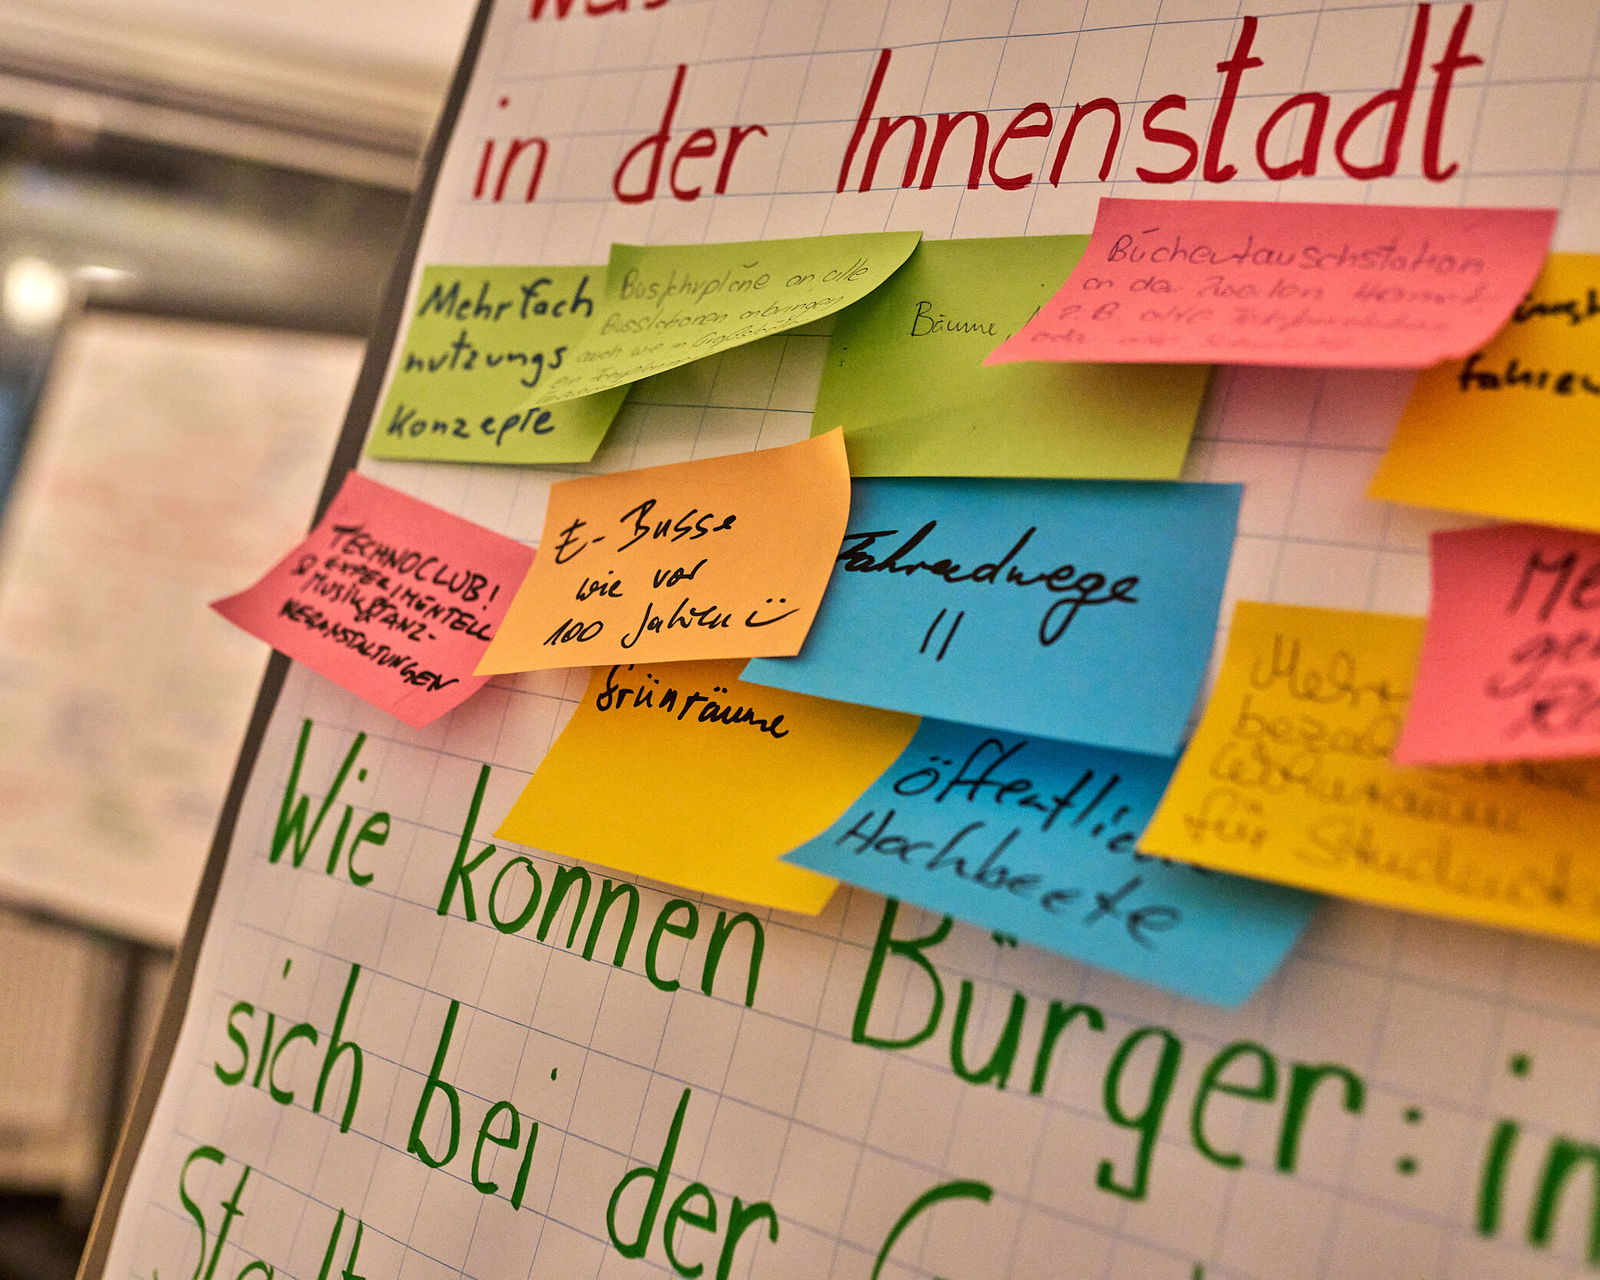 was
in der Innenstadt
Mehrfach
nutzungs
Konzepte
Busfahrpläne an alle
Busstationen anbringen
auch wie in
Bäume,
Büchertauschstation
an der
z.B. alte
fahren
TECHNOCLUB!
& EXPERIMENTELL
MUSIK & TANZ-
VERANSTALTUNGEN
E-Busse
wie vor
100 Jahren
Fahrradwege
||
Grünräume
öffentlich
Hochbeete
Mehr
beza
Wohnraum
für
Me
ge
Wie können Bürger:in
sich bei der G
Stadt